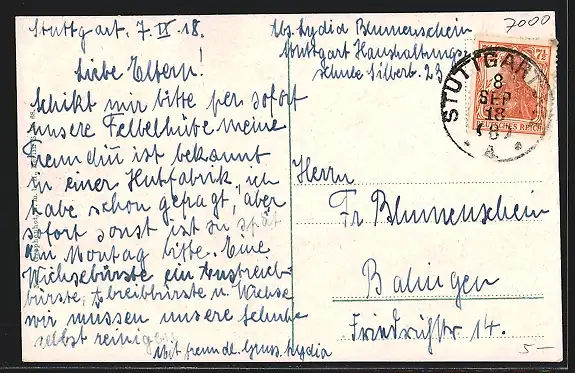 Stuttgart, 7. IX. 18.
Liebe Eltern!
Schikt mir bitte per sofort
unsere Felbelhüte meine
Freundin ist bekannt
in einer Hutfabrik, ich
habe schon gefragt, aber
sofort sonst ist zu spät
am Montag bitte. Eine
Wichsebürste ein Anstreich-
bürste, Abreibbürste u. Wichse
wir müssen unsere Schuhe
selbst reinigen
Mit freundl. Gruss Lydia
Abs. Lydia Blumenschein
Stuttgart Haushaltungs-
schule Silberb. 23
7000
7½
DEUTSCHES REICH
STUTTGART
8
SEP
18
A
Herrn
Fr. Blumenschein
Balingen
Friedrichstr. 14.
5-